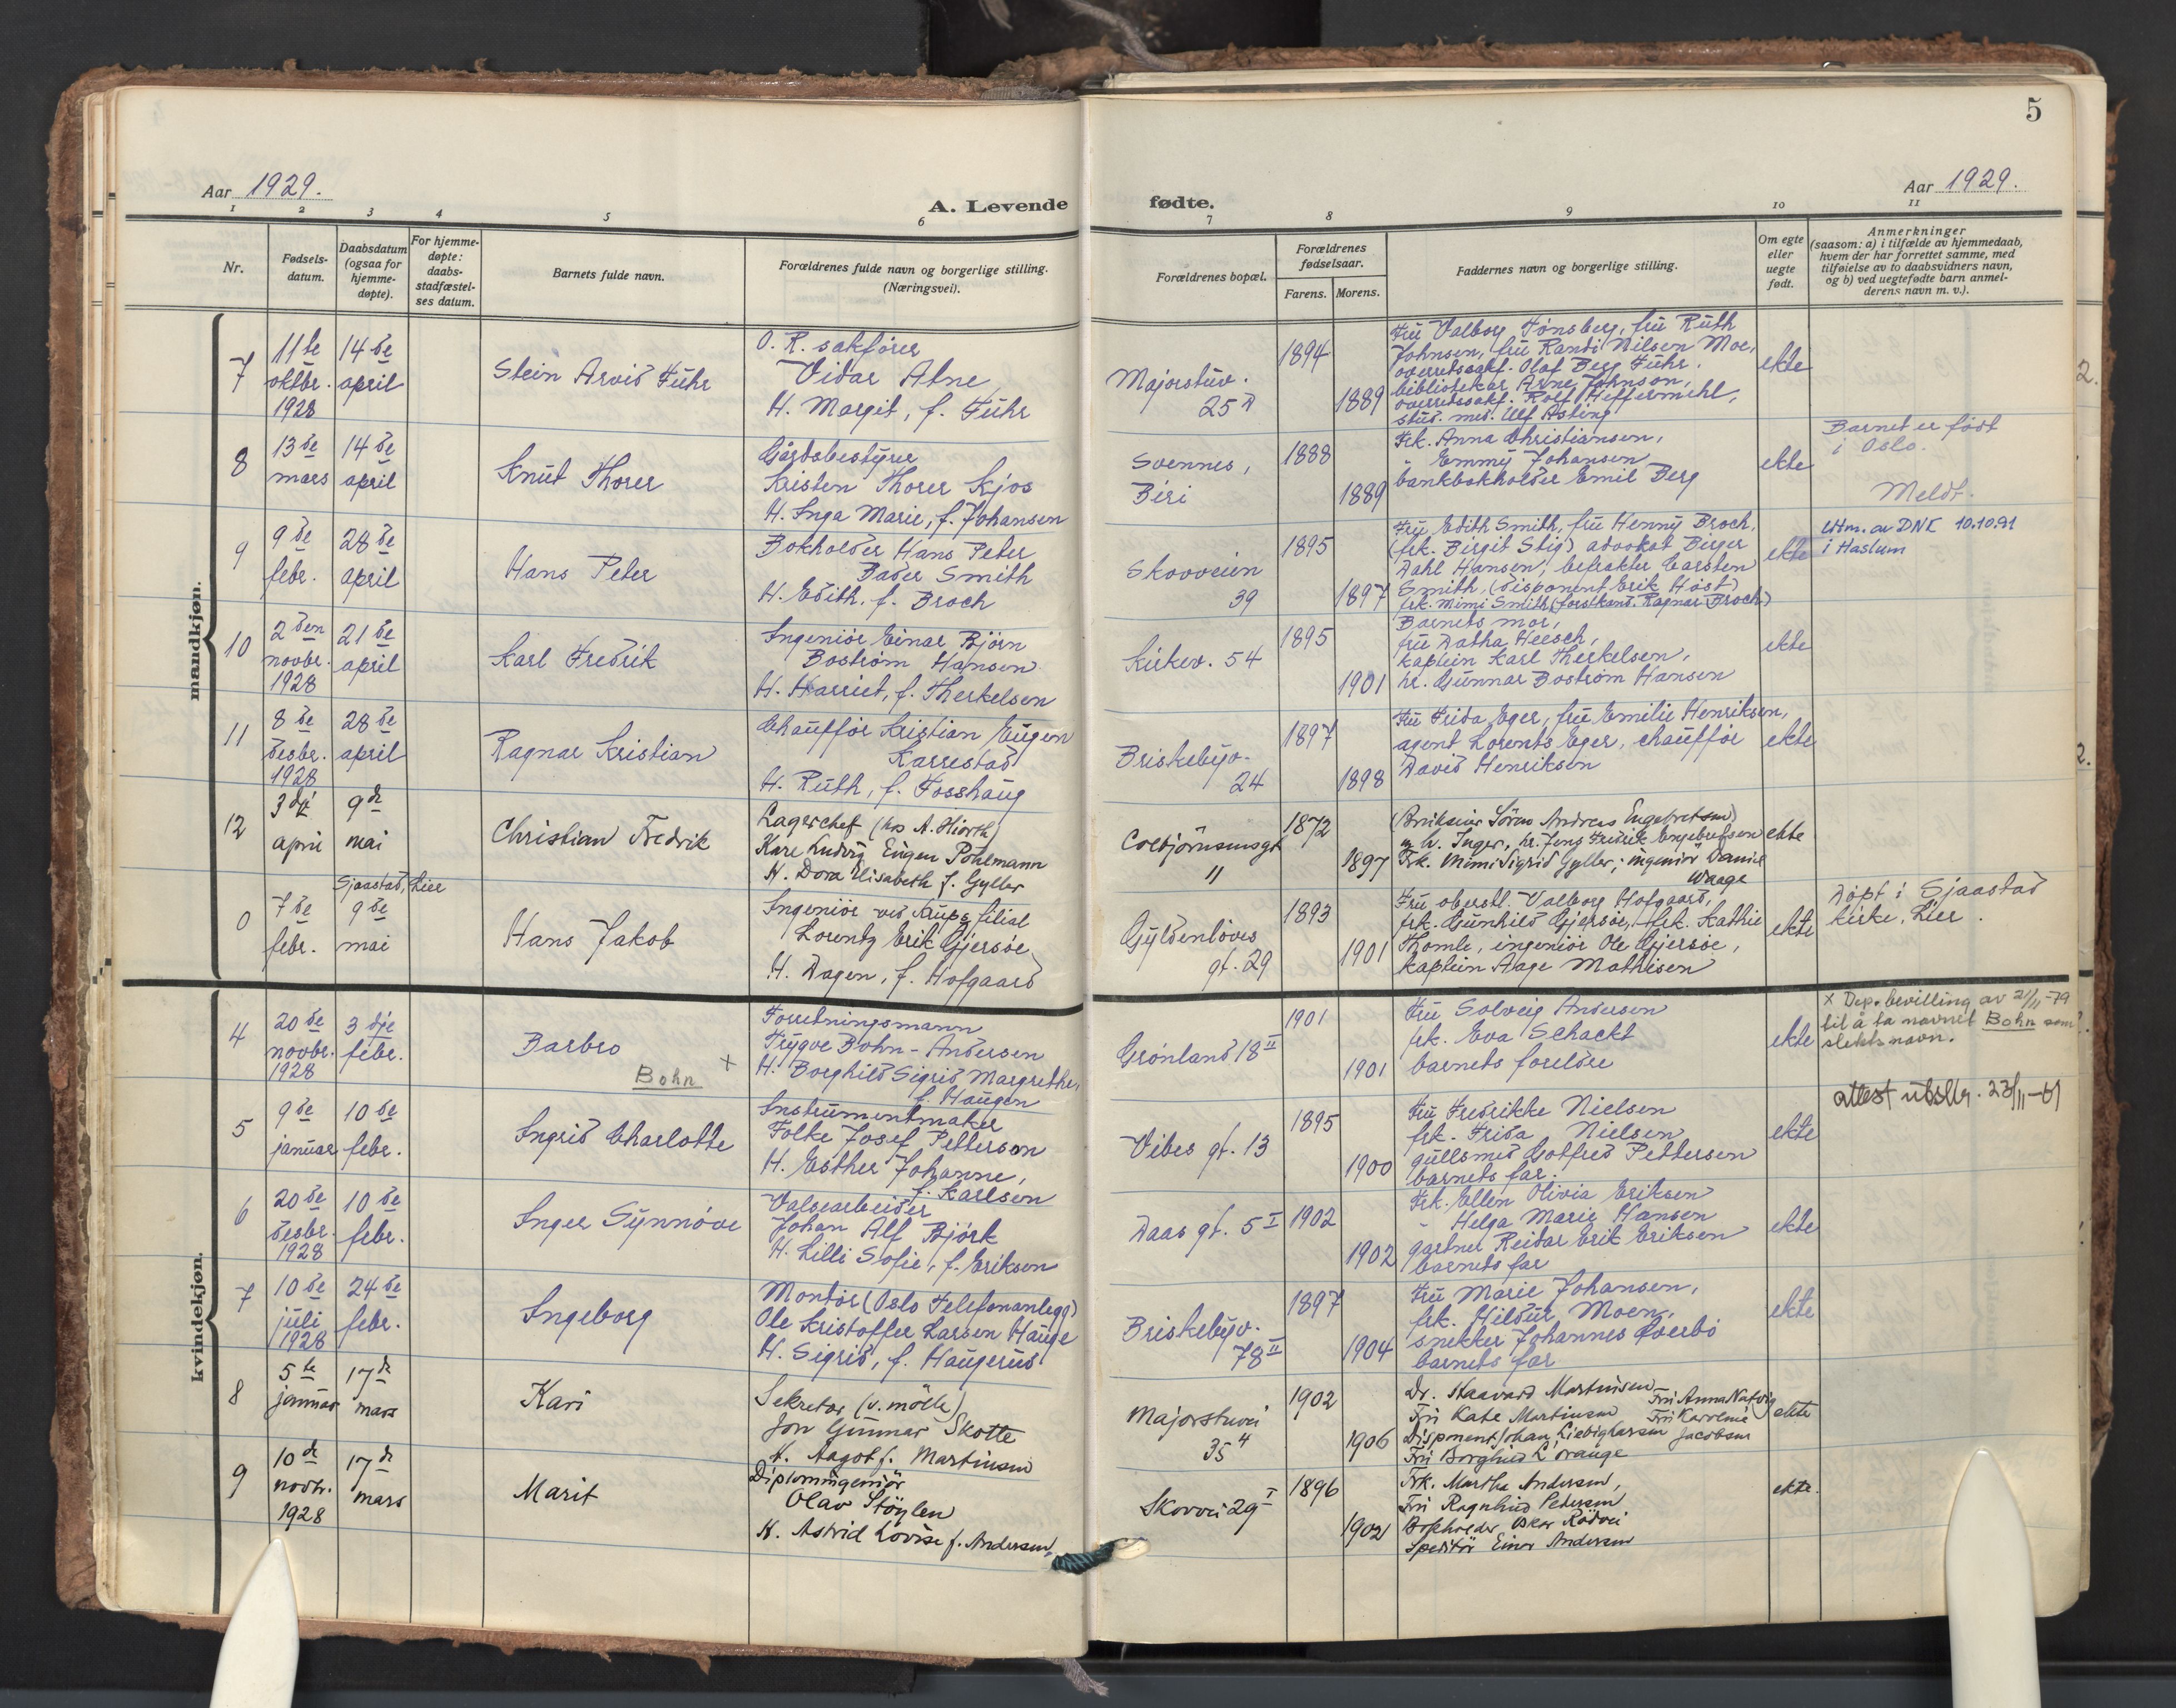 5
Aar 1929.
A. Levende
fødte.
Aar 1929.
1 2 3 4 5 6 7 8 9 10 11
Nr.
Fødsels-
datum.
Daabsdatum
(ogsaa for
hjemme-
døpte).
For hjemme-
døpte:
daabs-
stadfæstel-
ses datum.
Barnets fulde navn.
Forældrenes fulde navn og borgerlige stilling.
(Næringsvei).
Forældrenes bopæl.
Forældrenes
fødselsaar.
Farens. Morens.
Faddernes navn og borgerlige stilling.
Om egte
eller
uegte
født.
Anmerkninger
(saasom: a) i tilfælde av hjemmedaab,
hvem der har forrettet samme, med
tilføielse av to daabsvidners navn,
og b) ved uegtefødte barn anmel-
derens navn m. v.).
mandkjøn.
7
11te
oktbr.
1928
14de
april
Stein Arvid Führ
O. R. sakfører
Vidar Alne
H. Margit, f. Führ
Majorstuv.
25 A
1894
1889
Fru Valborg Tønsberg, fru Ruth
Johnsen, fru Randi Nilsen Moe,
overretssakf. Olaf Berg Führ,
bibliotekar Arne Johnson,
overretssakf. Rolf Heffermehl,
stud. med. Ulf Asting
ekte
8
13de
mars
14de
april
Knut Thorer
Gårdsbestyrer
Kristen Thorer Kjos
H. Inga Marie, f. Johansen
Svennes,
Biri
1888
1889
Frk. Anna Christiansen,
" Emmy Johansen
bankbokholder Emil Berg
ekte
Barnet er født
i Oslo.
Meldt.
9
9de
febr.
28de
april
Hans Peter
Bokholder Hans Peter
Bader Smith
H. Edith, f. Broch
Skovveien
39
1895
1897
Fru Edith Smith, fru Henny Broch,
(frk. Birgit Stig) advokat Birger
Dahl Hansen, befrakter Carsten
Smith, (disponent Erik Høst)
frk. Mimi Smith, (forstkand. Ragnar Broch)
ekte
Utm. av DNK 10.10.91
i Haslum
10
2den
novbr.
1928
21de
april
Karl Fredrik
Ingeniør Einar Bjørn
Bostrøm Hansen
H. Harriet, f. Therkelsen
Kirkev. 54
1895
1901
Barnets mor,
fru Datha Heesch,
kaptein Karl Therkelsen,
hr. Gunnar Bostrøm Hansen
ekte
11
8de
desbr.
1928
28de
april
Ragnar Kristian
Chauffør Kristian Eugen
Karrestad
H. Ruth, f. Fosshaug
Briskebyv.
24
1897
1898
Fru Frida Eger, fru Emilie Henriksen,
agent Lorents Eger, chauffør
David Henriksen
ekte
12
3dje
april
9de
mai
Christian Fredrik
Lagerchef (hos A. Hiorth)
Kare Ludvig Eugen Pohlmann
H. Dora Elisabeth f. Gyller
Colbjörnsensgt
11
1872
1897
(Bruksier Sören Andreas Engebretsen)
m h. Inger, hr. Jens Fredrik Engebretsen
Frk. Mimi Sigrid Gyller; ingeniør Daniel
Waage
ekte
0
7de
febr.
Sjaastad, Lier
9de
mai
Hans Jakob
Ingeniør ved Krups filial
Lorentz Erik Gjersøe
H. Dagen, f. Hofgaard
Gyldenløves
gt. 29
1893
1901
Fru oberstl. Valborg Hofgaard,
frk. Gunhild Gjersøe, frk. Kathie
Thomle, ingeniør Ole Gjersøe,
kaptein Aage Mathisen
ekte
Døpt i Sjaastad
kirke, Lier.
kvindekjøn.
4
20de
novbr.
1928
3dje
febr.
Barbro
Bohn
x
Forretningsmann
Trygve Bohn-Andersen
H. Borghild Sigrid Margrethe,
f. Haugen
Grønland 18 II
1901
1901
Fru Solveig Andersen
frk. Eva Schackt
barnets foreldre
ekte
x Dep. bevilling av 21/11-79
til å ta navnet Bohn som
slektsnavn.
5
9de
januar
10de
febr.
Ingrid Charlotte
Instrumentmaker
Folke Josef Petterson
H. Esther Johanne,
f. Karlsen
Vibes gt. 13
1895
1900
Fru Fredrikke Nielsen
frk. Frida Nielsen
gullsmed Gotfred Pettersen
barnets far.
ekte
attest utstdr. 23/11-51
6
20de
desbr.
1928
10de
febr.
Inger Synnøve
Valsearbeider
Johan Alf Bjørk
H. Lilli Sofie, f. Eriksen
Daas gt. 5 I
1902
1902
Frk. Ellen Olivia Eriksen
" Helga Marie Hansen
gartner Reidar Erik Eriksen
barnets far
ekte
7
10de
juli
1928
24de
febr.
Ingeborg
Montør (Oslo Telefonanlegg)
Ole Kristoffer Larsen Hauge
H. Sigrid, f. Haugerud
Briskebyv.
78 II
1897
1904
Fru Marie Johansen,
frk. Hildur Moen,
snekker Johannes Øverbø
barnets far
ekte
8
5te
januar
17de
mars
Kari
Sekretær (v. mölle)
Jon Gunnar Skotte
H. Aagot f. Martinsen
Majorstuvei
35 4
1902
1906
Dr. Haavard Martinsen Fru Anna Natvig
Fru Kate Martinsen Fru Karoline
Disponent Johan Liebig Larsen Jacobsen
Fru Borghild L'orange
ekte
9
10de
novbr.
1928
17de
mars
Marit
Diplomingeniör
Olav Stöylen
H. Astrid Lovise f. Andersen
Skovvei 29 I
1896
1902
Frk. Martha Andersen,
Fru Ragnhild Pedersen
Bokholder Oskar Rödvei
Speditör Einar Andersen
ekte.